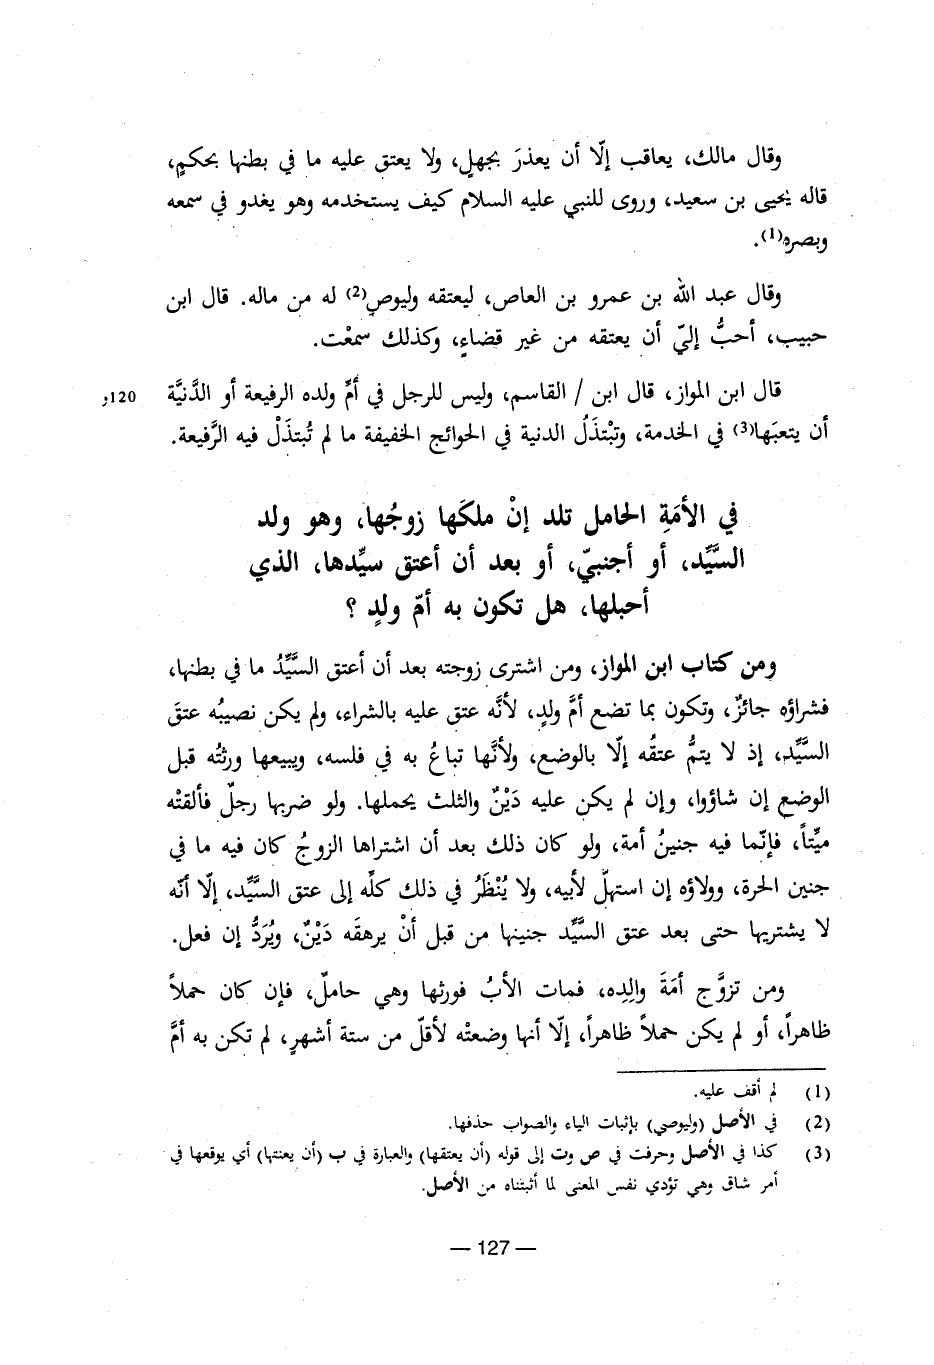 وقال مالك، يعاقب إلّا أن يعذرَ بجهلٍ، ولا يعتق عليه ما في بطنها بحكمٍ،
قاله يحيى بن سعيد، وروى للنبي عليه السلام كيف يستخدمه وهو يغدو في سمعه
وبصره(1).
وقال عبد الله بن عمرو بن العاص، ليعتقه وليوصِ(2) له من ماله. قال ابن
حبيب، أحبُّ إليّ أن يعتقه من غير قضاءٍ، وكذلك سمعْت.
قال ابن المواز، قال ابن / القاسم، وليس للرجل في أمِّ ولده الرفيعة أو الدَّنيَّة
120و
أن يتعبَها(3) في الخدمة، وتبْتذَلُ الدنية في الحوائج الخفيفة ما لم تُبتذَلْ فيه الرَّفيعة.
في الأمَةِ الحامل تلد إنْ ملكَها زوجُها، وهو ولد
السَّيِّد، أو أجنبيّ، أو بعد أن أعتق سيِّدها، الذي
أحبلها، هل تكون به أمّ ولدٍ ؟
ومن كتاب ابن المواز، ومن اشترى زوجته بعد أن أعتق السَّيِّدُ ما في بطنها،
فشراؤه جائزٌ، وتكون بما تضع أمَّ ولدٍ، لأنَّه عتق عليه بالشراء، ولم يكن نصيبُه عتقَ
السَّيِّد، إذ لا يتمُّ عتقُه إلّا بالوضع، ولأنَّها تباعُ به في فلسه، ويبيعها ورثتُه قبل
الوضع إن شاؤوا، وإن لم يكن عليه دَيْنٌ والثلث يحملها. ولو ضربها رجلٌ فألقتْه
ميِّتاً، فإنّما فيه جنينُ أمة، ولو كان ذلك بعد أن اشتراها الزوجُ كان فيه ما في
جنين الحرة، وولاؤه إن استهلّ لأبيه، ولا يُنْظَرُ في ذلك كلِّه إلى عتق السَّيِّد، إلّا أنّه
لا يشتريها حتى بعد عتق السَّيِّد جنينها من قبل أنْ يرهقَه دَيْنٌ، ويُرَدُّ إن فعل.
ومن تزوَّج أمَةَ والِدِه، فمات الأبُ فورثها وهي حاملٌ، فإن كان حملاً
ظاهراً، أو لم يكن حملاً ظاهراً، إلّا أنها وضعتْه لأقلّ من ستة أشهرٍ، لم تكن به أمَّ
(1) لم أقف عليه.
(2) في الأصل (وليوصي) بإثبات الياء والصواب حذفها.
(3) كذا في الأصل وحرفت في ص وت إلى قوله (أن يعتقها) والعبارة في ب (أن يعنتها) أي يوقعها في
أمر شاق وهي تؤدي نفس المعنى لما أثبتناه من الأصل.
— 127 —